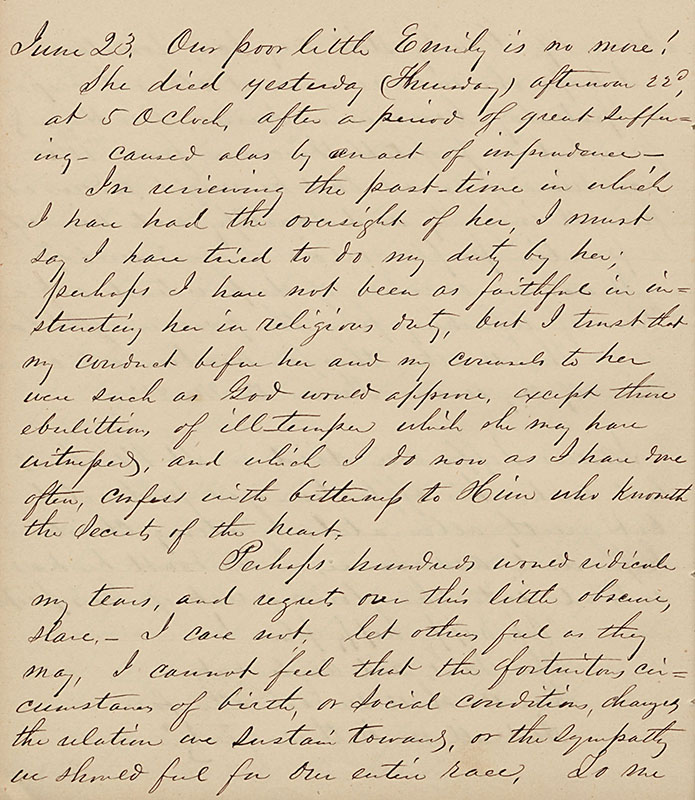 June 23. Our poor little Emily is no more!
She died yesterday (Thursday) afternoon 22d,
at 5 OClock, after a period of great suffer=
ing - caused alas by an act of imprudence -
In reviewing the past - time in which
I have had the oversight of her, I must
say I have tried to do my duty by her;
perhaps I have not been as faithful in in=
structing her in religious duty, but I trust that
my conduct before her and my counsels to her
were such as God would approve, except those
ebulitions, of ill-temper which she may have
witnessed, and which I do now as I have done
often, confess with bitterness to Him who knoweth
the secrets of the heart.
Perhaps hundreds would ridicule
my tears, and regrets over this little obscure,
slave, - I care not, let others feel as they
may, I cannot feel that the fortuitous cir=
cumstances of birth, or social conditions, changes
the relation we sustain towards, or the sympathy
we should feel for our entire race, To me